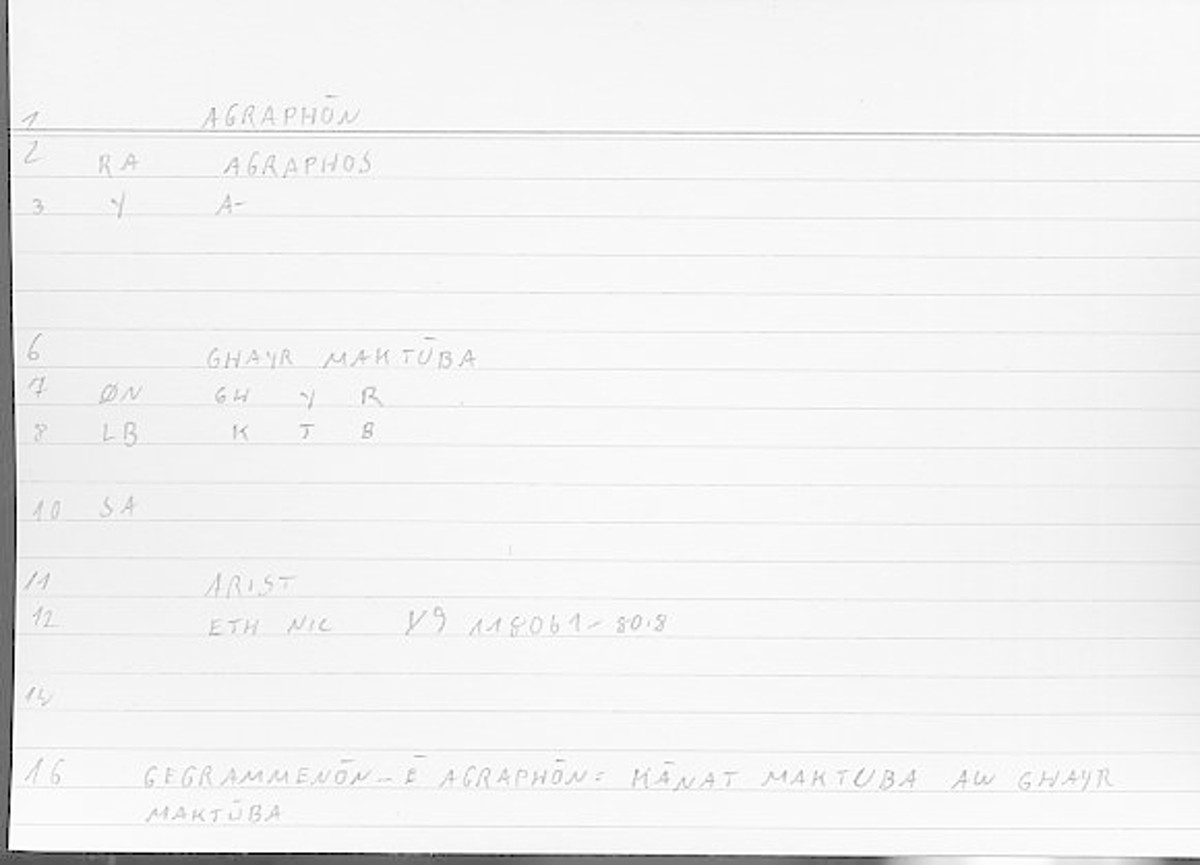 1 AGRAPHŌN
2 RA AGRAPHOS
3 Y A-
6 GHAYR MAKTŪBA
7 ØN GH Y R
8 LB K T B
10 SA
11 ARIST
12 ETH NIC
14
16 GEGRAMMENŌN - Ē AGRAPHŌN = KĀNAT MAKTUBA AW GHAYR
MAKTŪBA